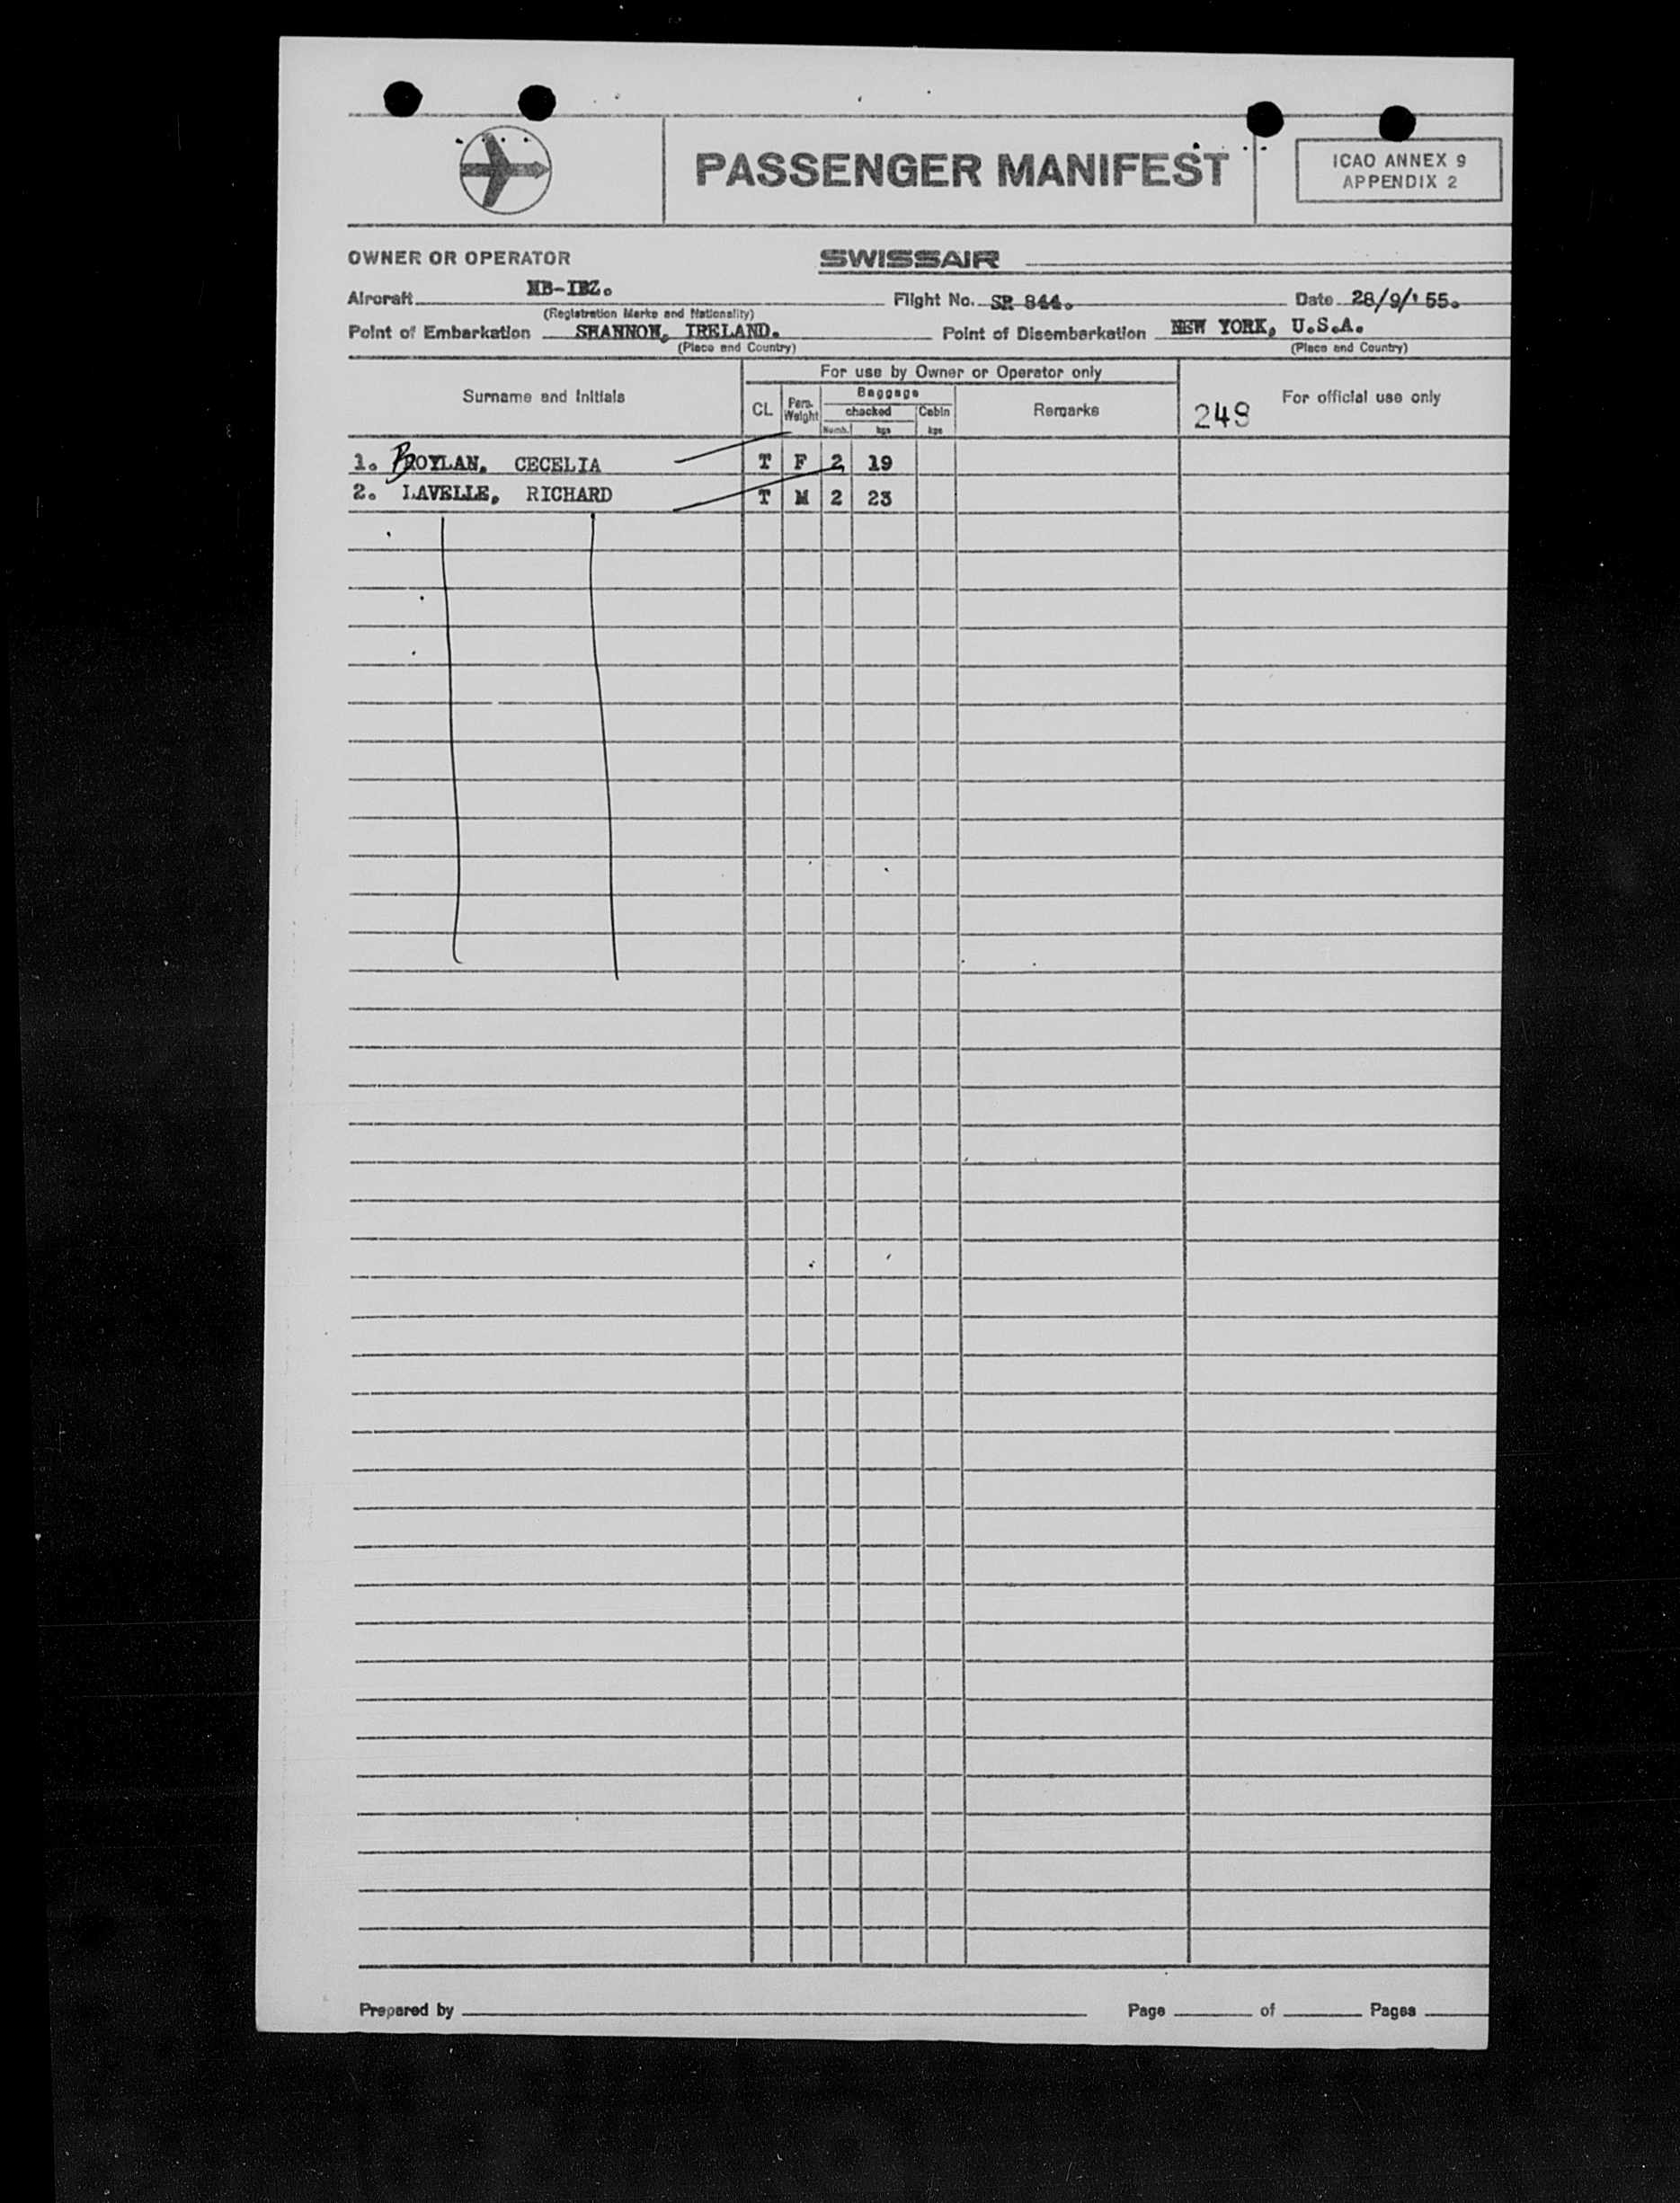 PASSENGER MANIFEST
ICAO ANNEX 9
APPENDIX 2
OWNER OR OPERATOR SWISSAIR
Aircraft HB-IBZ. Flight No. SR 844. Date 28/9/'55.
(Registration Marks and Nationality)
Point of Embarkation SHANNON, IRELAND. Point of Disembarkation NEW YORK, U.S.A.
(Place and Country) (Place and Country)
For use by Owner or Operator only
Surname and Initials CL Pers. Weight Baggage checked Numb. kgs Cabin kgs Remarks 249 For official use only
1. BOYLAN, CECELIA T F 2 19
2. LAVELLE, RICHARD T M 2 23
Prepared by Page of Pages